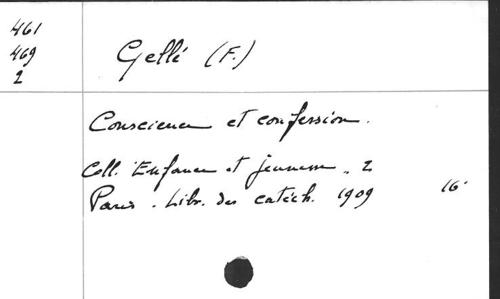 461
469
2
Gellé (F.)
Conscience et confession.
Coll. Enfance et jeunesse. 2
Paris. Libr. des catéch. 1909 16°